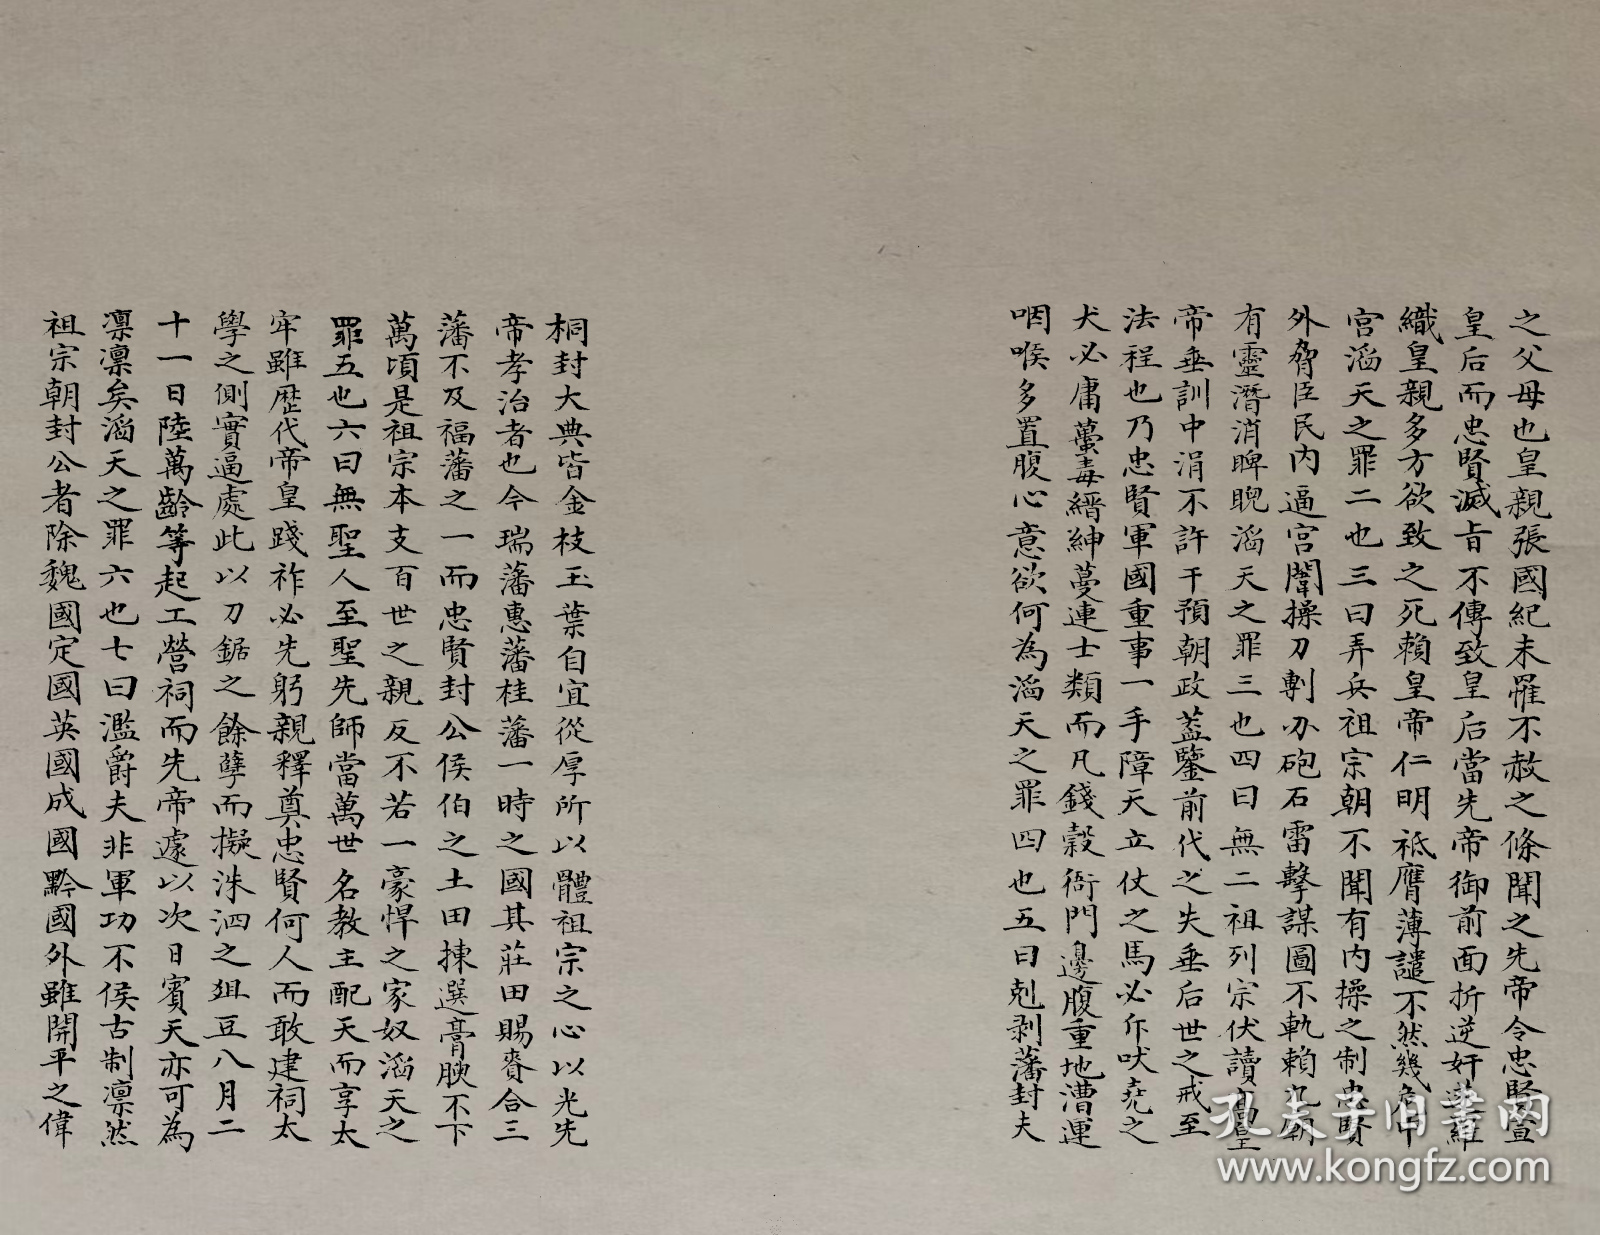 之父母也皇親張國紀未罹不赦之條聞之先帝令忠賢宣
皇后而忠賢滅旨不傳致皇后當先帝御前面折逆奸遂羅
織皇親多方欲致之死賴皇帝仁明祗膺薄譴不然幾危中
宮滔天之罪二也三曰弄兵祖宗朝不聞有內操之制忠賢
外脅臣民內逼宮闈操刀剸刃砲石雷擊謀圖不軌賴九廟
有靈潛消睥睨滔天之罪三也四曰無二祖列宗伏讀高皇
帝垂訓中涓不許干預朝政蓋鑒前代之失垂后世之戒至
法程也乃忠賢軍國重事一手障天立仗之馬必斥吠堯之
犬必庸蠆毒縉紳蔓連士類而凡錢穀衙門邊腹重地漕運
咽喉多置腹心意欲何為滔天之罪四也五曰剋剥藩封夫
桐封大典皆金枝玉葉自宜從厚所以體祖宗之心以光先
帝孝治者也今瑞藩惠藩桂藩一時之國其莊田賜賚合三
藩不及福藩之一而忠賢封公侯伯之土田揀選膏腴不下
萬頃是祖宗本支百世之親反不若一豪悍之家奴滔天之
罪五也六曰無聖人至聖先師當萬世名教主配天而享太
牢雖歷代帝皇踐祚必先躬親釋奠忠賢何人而敢建祠太
學之側實逼處此以刀鋸之餘孽而擬洙泗之俎豆八月二
十一日陸萬齡等起工營祠而先帝遽以次日賓天亦可為
凛凛矣滔天之罪六也七曰濫爵夫非軍功不侯古制凛然
祖宗朝封公者除魏國定國英國成國黔國外雖開平之偉
孔夫子旧书网
www.kongfz.com